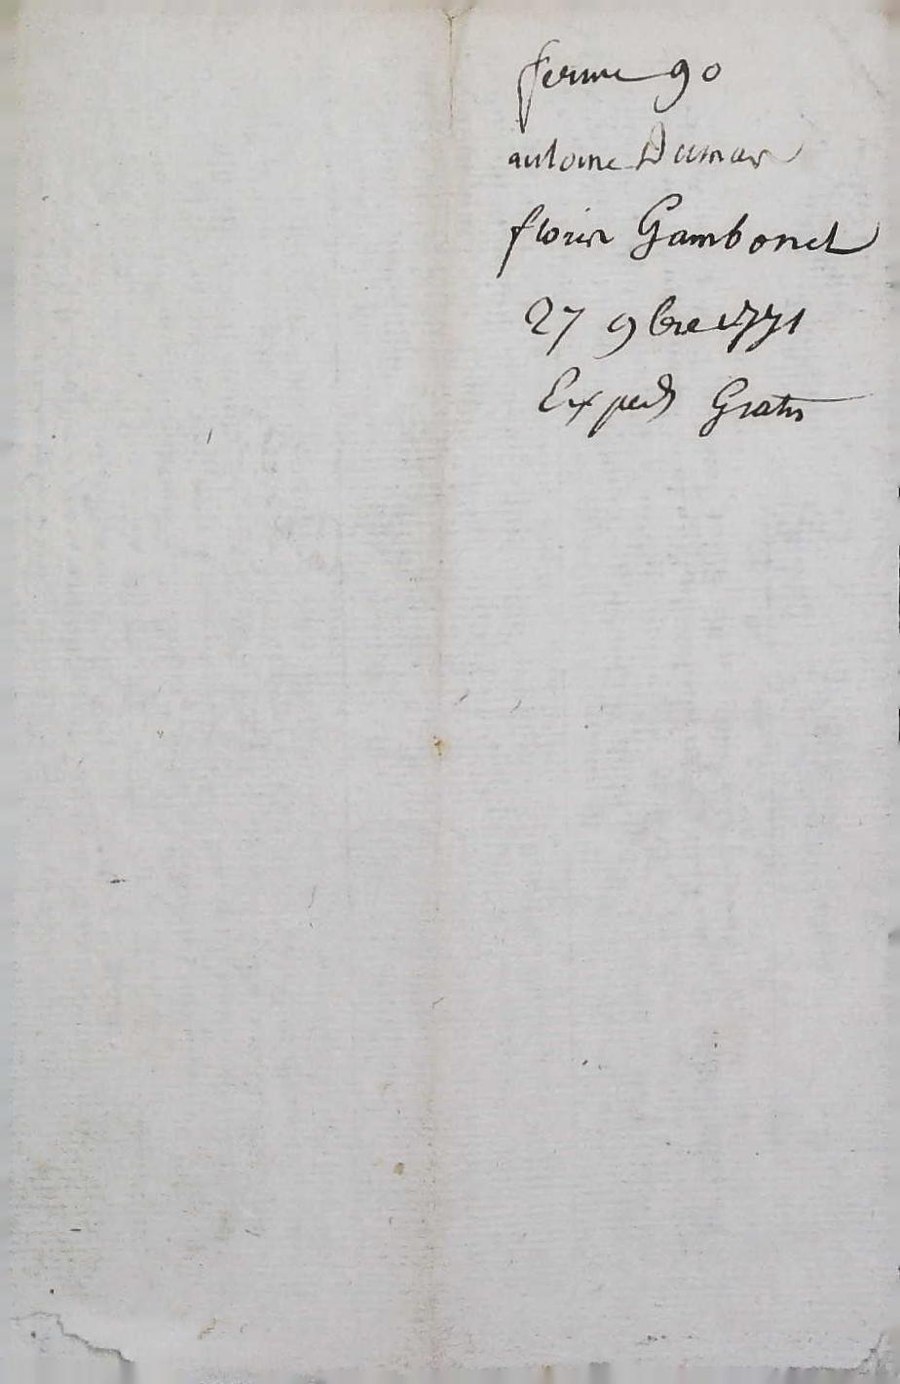 ferme 90
antoine Dumas
florier Gambonet
27 9bre 1771
Exped Gratis